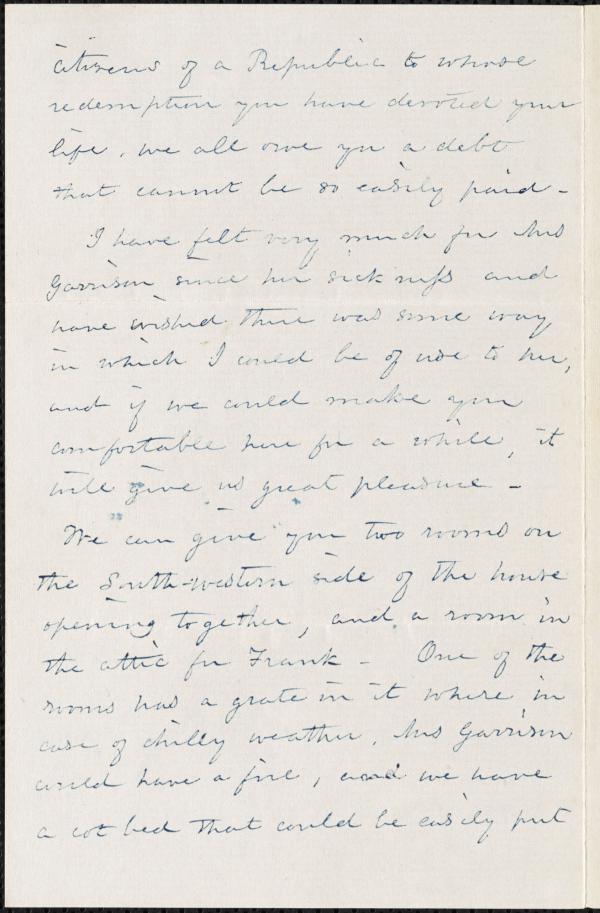 citizens of a Republic to whose
redemption you have devoted your
life, we all owe you a debt
that cannot be so easily paid -
I have felt very much for Mrs
Garrison since her sickness and
have wished there was some way
in which I could be of use to her,
and if we could make you
comfortable here for a while, it
will give us great pleasure -
We can give you two rooms on
the South-western side of the house
opening together, and a room in
the attic for Frank - One of the
rooms has a grate in it where in
case of chilly weather, Mrs Garrison
could have a fire, and we have
a cot bed that could be easily put